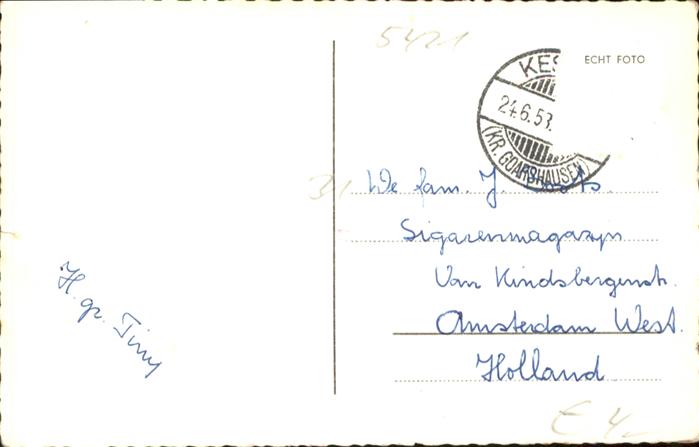 5421
ECHT FOTO
KES
24.6.53.
(KR. GOARSHAUSEN)
31 De fam. J.
Sigarenmagazyn
Van Kindsbergenstr.
Amsterdam West.
Holland
H. gr. Tiny
£ 4,-